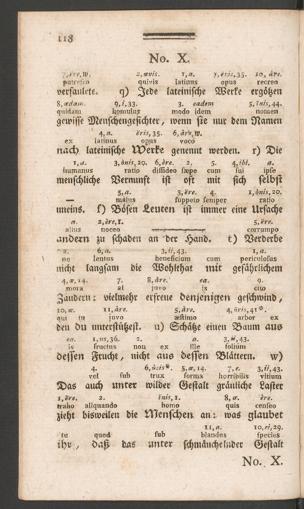 118
No. X.
7, ëre, w. 2, ævis. 1, a. 7, ëxis, 35. 10, äre.
putresco quivis latinus opus recreo
verfaulete. q) Jede lateinische Werke ergötzen
8, ædam. 9, i, 33. 3. eadem 5, inis, 44.
quidam homulus modo idem nomen
gewisse Menschengesichter, wenn sie nur dem Namen
4, a. ëris, 35. 6, äre, w.
ex latinus opus voco
nach lateinische Werke genennt werden. r) Die
1, a. 3, önis, 29. 6, ëre. 2. 5. 4, ibi. a.
humanus ratio diffideo sæpe cum sui ipse
menschliche Vernunft ist oft mit sich selbst
— 5, a. 3, ëre. 4. 1, önis, 20.
malus suppeto semper ratio
uneins. s) Bösen Leuten ist immer eine Ursache
a. 2, ëre, 1. 5, ëre.
alius noceo corrumpo
andern zu schaden an der Hand. t) Verderbe
2. 6, a. 3, ii, 43. 1, a.
ne lentus beneficium cum periculosus
nicht langsam die Wohlthat mit gefährlichem
4, æ, 14. 7. 8, äre. ea. 9.
mora at juvo is cito
Zaudern: vielmehr erfreue denjenigen geschwind,
10, æ. 11, äre. 5, äre. 4, öris, 41*.
qui tu juvo æstimo arbor ex
den du unterstützest. u) Schätze einen Baum aus
ea. 1, us, 36. 2. a. 3, ii, 43.
is fructus non ex ille folium
dessen Frucht, nicht aus dessen Blättern. w)
4. 6, ücis*. 5, æ, 14. 7, e. 3, ii, 43.
vel sub trux forma horribilis vitium
Das auch unter wilder Gestalt gräuliche Laster
1, ëre. 2. inis, 1. 8, æ. ëre.
traho aliquando homo quis censeo
zieht bisweilen die Menschen an: was glaubet
11, a. 10, ei, 29.
tu quod sub blandus species
ihr, daß das unter schmäuchelnder Gestalt
No. X.